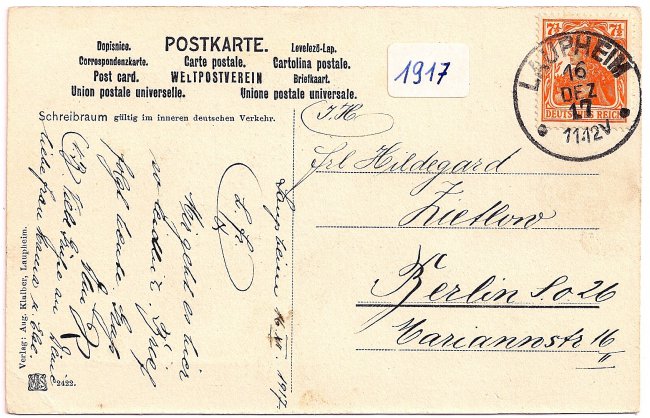 Dopisnice.
POSTKARTE.
Levelező-Lap.
Correspondenzkarte.
Carte postale.
Cartolina postale.
Post card.
WELTPOSTVEREIN
Briefkaart.
Union postale universelle.
Unione postale universale.
Schreibraum gültig im inneren deutschen Verkehr.
1917
7½ 7½
DEUTSCHES REICH
LAUPHEIM
16
DEZ
17
11-12V
Frl Hildegard
Zietlow
Berlin S.o 26
Mariannstr 16
Laupheim 16. XII. 1917
Mir geht es hier
Brief
folgt heute.
Viele Grüße an Deine
liebe Frau Mama u.
Verlag: Aug. Klaiber, Laupheim.
2422.